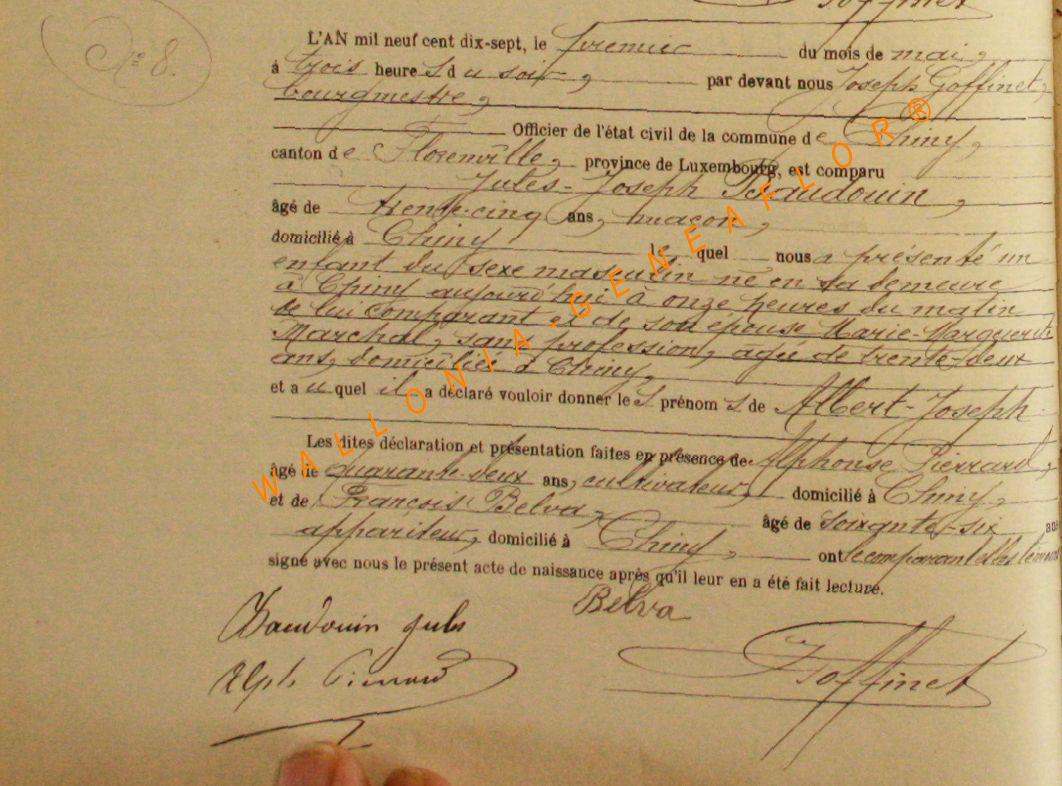 Goffinet
N° 8.
L'AN mil neuf cent dix-sept, le premier du mois de mai,
à trois heures du soir, par devant nous Joseph Goffinet,
bourgmestre,
Officier de l'état civil de la commune de Chiny,
canton de Florenville, province de Luxembourg, est comparu
Jules-Joseph Baudouin,
âgé de trente-cinq ans, maçon,
domicilié à Chiny lequel nous a présenté un
enfant du sexe masculin né en sa demeure
à Chiny aujourd'hui à onze heures du matin
de lui comparant et de son épouse Marie-Marguerite
Marchal, sans profession, âgée de trente-deux
ans, domiciliée à Chiny,
et auquel il a déclaré vouloir donner les prénoms de Albert-Joseph
Les dites déclaration et présentation faites en présence de Alphonse Pierrard,
âgé de quarante-deux ans, cultivateur, domicilié à Chiny,
et de François Belva, âgé de soixante-six ans
appariteur, domicilié à Chiny, ont le comparant et les témoins
signé avec nous le présent acte de naissance après qu'il leur en a été fait lecture.
Baudouin Jules
Belva
Alph Pierrard
J Goffinet
WALLONIA-GENEAFLOR®